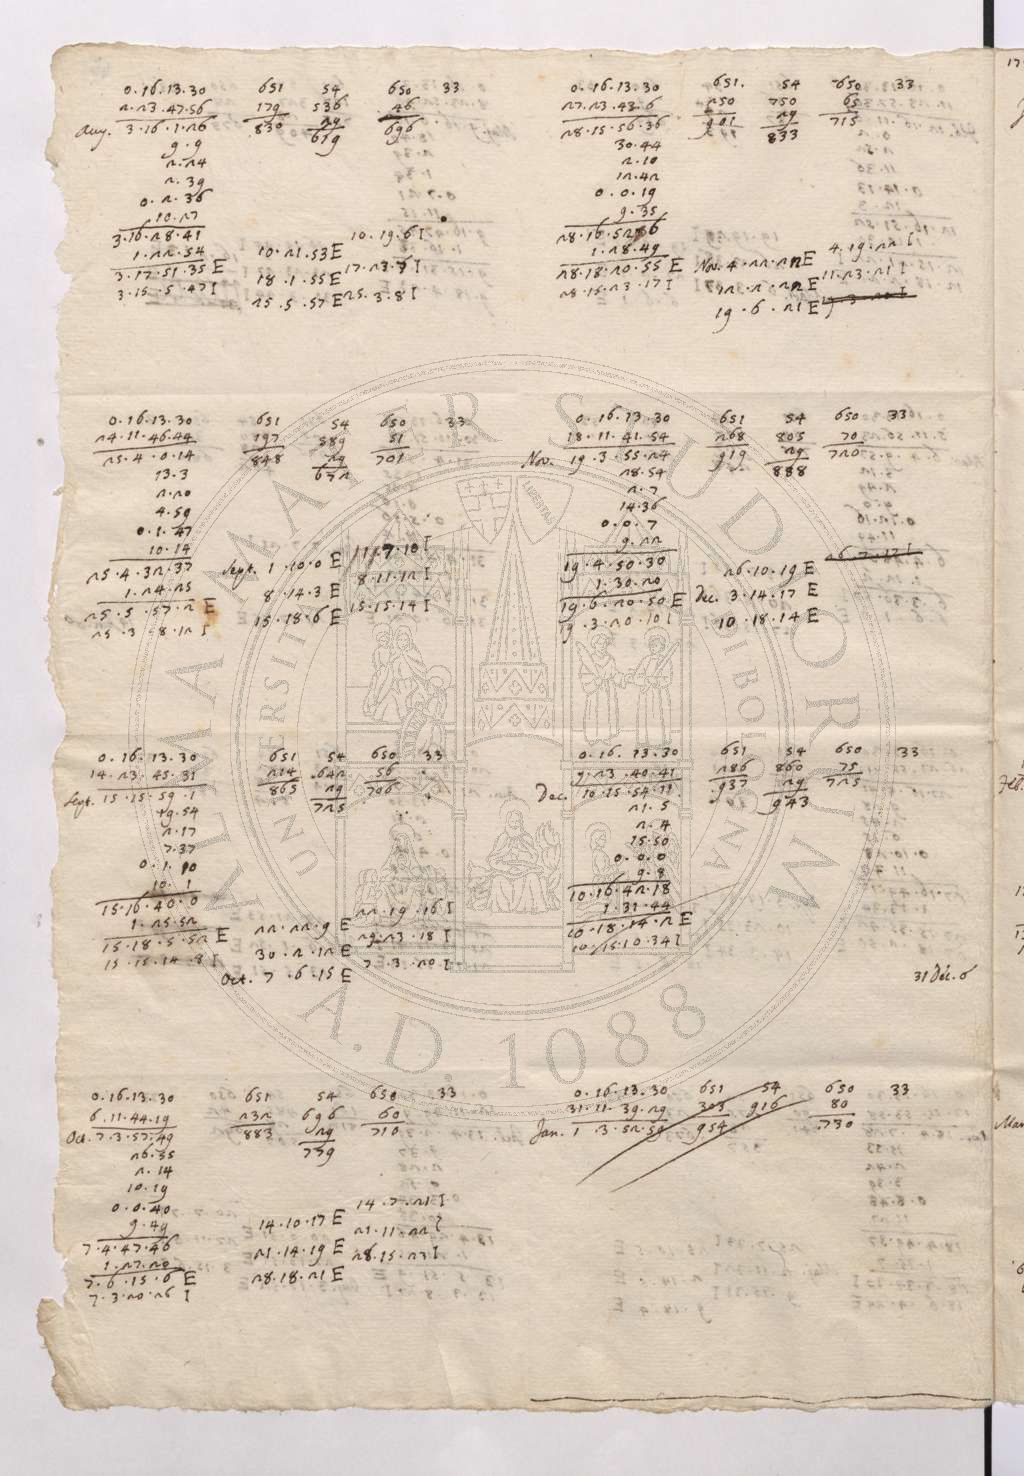 0.16.13.30 651 54 650 33
2.23.47.56 179 536 46
Aug. 3.16.1.26 830 29 696
619
9.9
2.24
2.39
0.2.36
10.27
3.16.28.41 10.19.6 I
1.22.54 10.21.53 E
3.17.51.35 E 18.1.55 E 17.23.7 I
3.15.5.47 I 25.5.57 E 25.3.8 I
0.16.13.30 651. 54 650 33
27.23.43.6 250 750 65
28.15.56.36 901 29 715
833
30.44
2.10
12.42
0.0.19
9.35
28.16.52.06
1.28.49 4.19.22 I
28.18.20.55 E Nov. 4.22.22 E 11.23.21 I
28.15.23.17 I 12.2.22 E 19.3.20 I
19.6.21 E
0.16.13.30 651 54 650 33
24.11.46.44 197 589 51
25.4.0.14 848 29 701
672
13.3
2.20
4.59
0.1.47
10.14 1.7.10 I
25.4.32.37 Sept. 1.10.0 E
1.24.25 8.14.3 E 8.11.12 I
25.5.57.2 E 15.18.6 E 15.15.14 I
25.3.8.12 I
0.16.13.30 651 54 650 33
18.11.41.54 268 805 70
Nov. 19.3.55.24 919 29 720
888
28.54
2.7
14.36
0.0.7
9.22
19.4.50.30 26.10.19 E 26.7.17 I
1.30.20
19.6.20.50 E Dec. 3.14.17 E
19.3.20.10 I 10.18.14 E
0.16.13.30 651 54 650 33
14.23.45.31 214 642 56
Sept. 15.15.59.1 865 29 706
725
19.54
2.17
7.37
0.1.10
10.1
15.16.40.0 22.19.16 I
1.25.52 22.22.9 E
15.18.5.52 E 30.2.12 E 29.23.18 I
15.15.14.8 I Oct. 7.6.15 E 7.3.20 I
0.16.13.30 651 54 650 33
9.23.40.41 286 860 75
Dec. 10.15.54.11 937 29 725
943
21.5
2.4
15.50
0.0.0
9.8
10.16.42.18
1.31.44
10.18.14.2 E
10.15.10.34 I
31 Dec. 6
0.16.13.30 651 54 650 33
6.11.44.19 232 696 60
Oct. 7.3.57.49 883 29 710
779
26.35
2.14
10.19
0.0.40
9.49 14.7.21 I
7.4.47.46 14.10.17 E 21.11.22 I
1.27.20 21.14.19 E
7.6.15.6 E 28.18.21 E 28.15.23 I
7.3.20.26 I
0.16.13.30 651 54 650 33
31.11.39.29 303 916 80
Jan. 1 3.52.59 954 730
ALMA MATER STUDIORUM
UNIVERSITÀ DI BOLOGNA
LIBERTAS
A.D. 1088